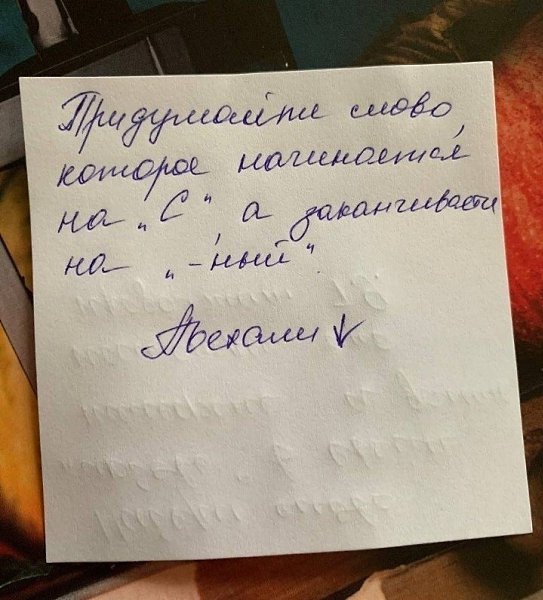 Придумайте слово,
которое начинается
на „С", а заканчивается
на „-ный".
Поехали ↓